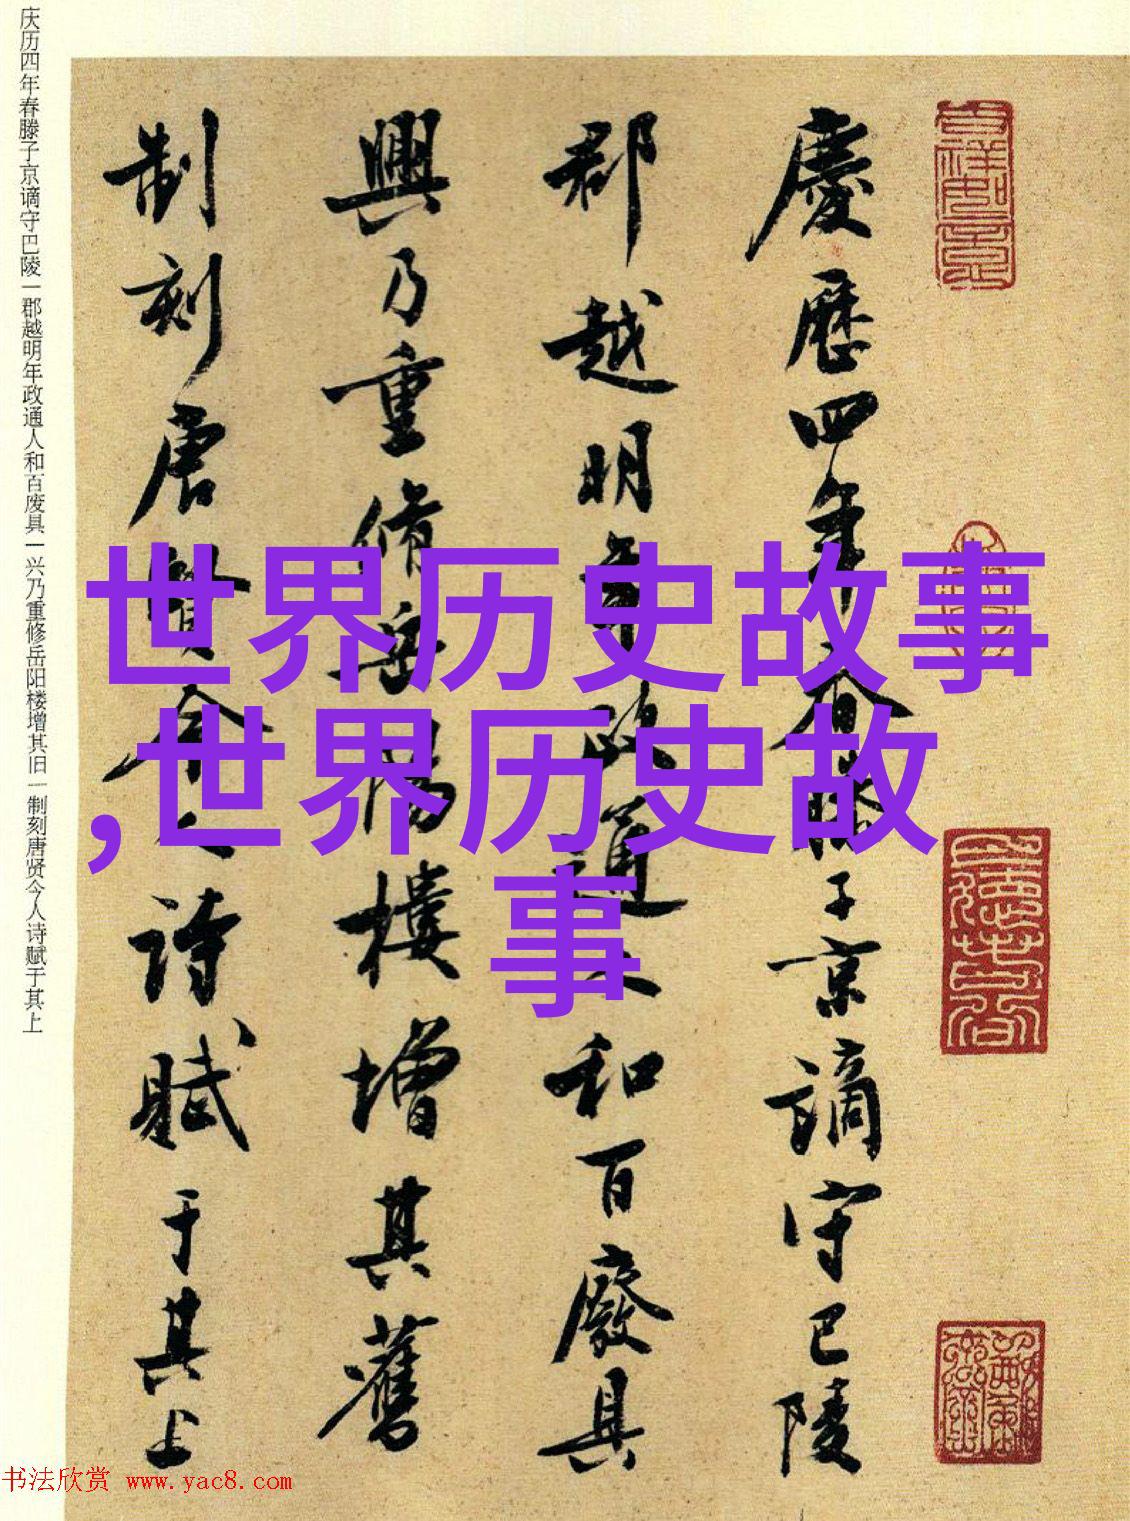 庆历四年春滕子京谪守巴陵一郡越明年政通人和百废具一兴乃重修岳阳楼增其旧一制刻唐贤今人诗赋于其上
慶歷四年春滕子京謫守巴陵
郡越明年政通人和百廢具
興乃重修岳陽樓增其舊
制刻唐賢今人詩賦于其上
世界历史故事
,世界历史故
事
书法欣赏 www.yac8.com